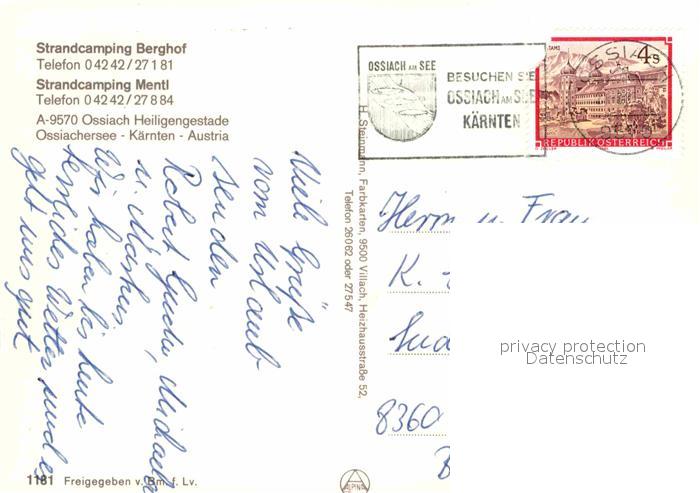 Strandcamping Berghof
Telefon 0 42 42 / 27 1 81
Strandcamping Mentl
Telefon 0 42 42 / 27 8 84
A-9570 Ossiach Heiligengestade
Ossiachersee - Kärnten - Austria
Viele Grüße
vom Urlaub
senden
Robert Gerda, Michaela
u. Markus
Wir haben bis heute
Wetter und es
geht uns gut
1181 Freigegeben v. Bm. f. Lv.
H. Steinmann, Farbkarten, 9500 Villach, Heizhausstraße 52,
Telefon 26062 oder 27547
ALPINA
OSSIACH AM SEE
BESUCHEN SIE
OSSIACH AM SEE
KÄRNTEN
4 S
REPUBLIK ÖSTERREICH
Herrn u. Frau
K.
8360
privacy protection
Datenschutz